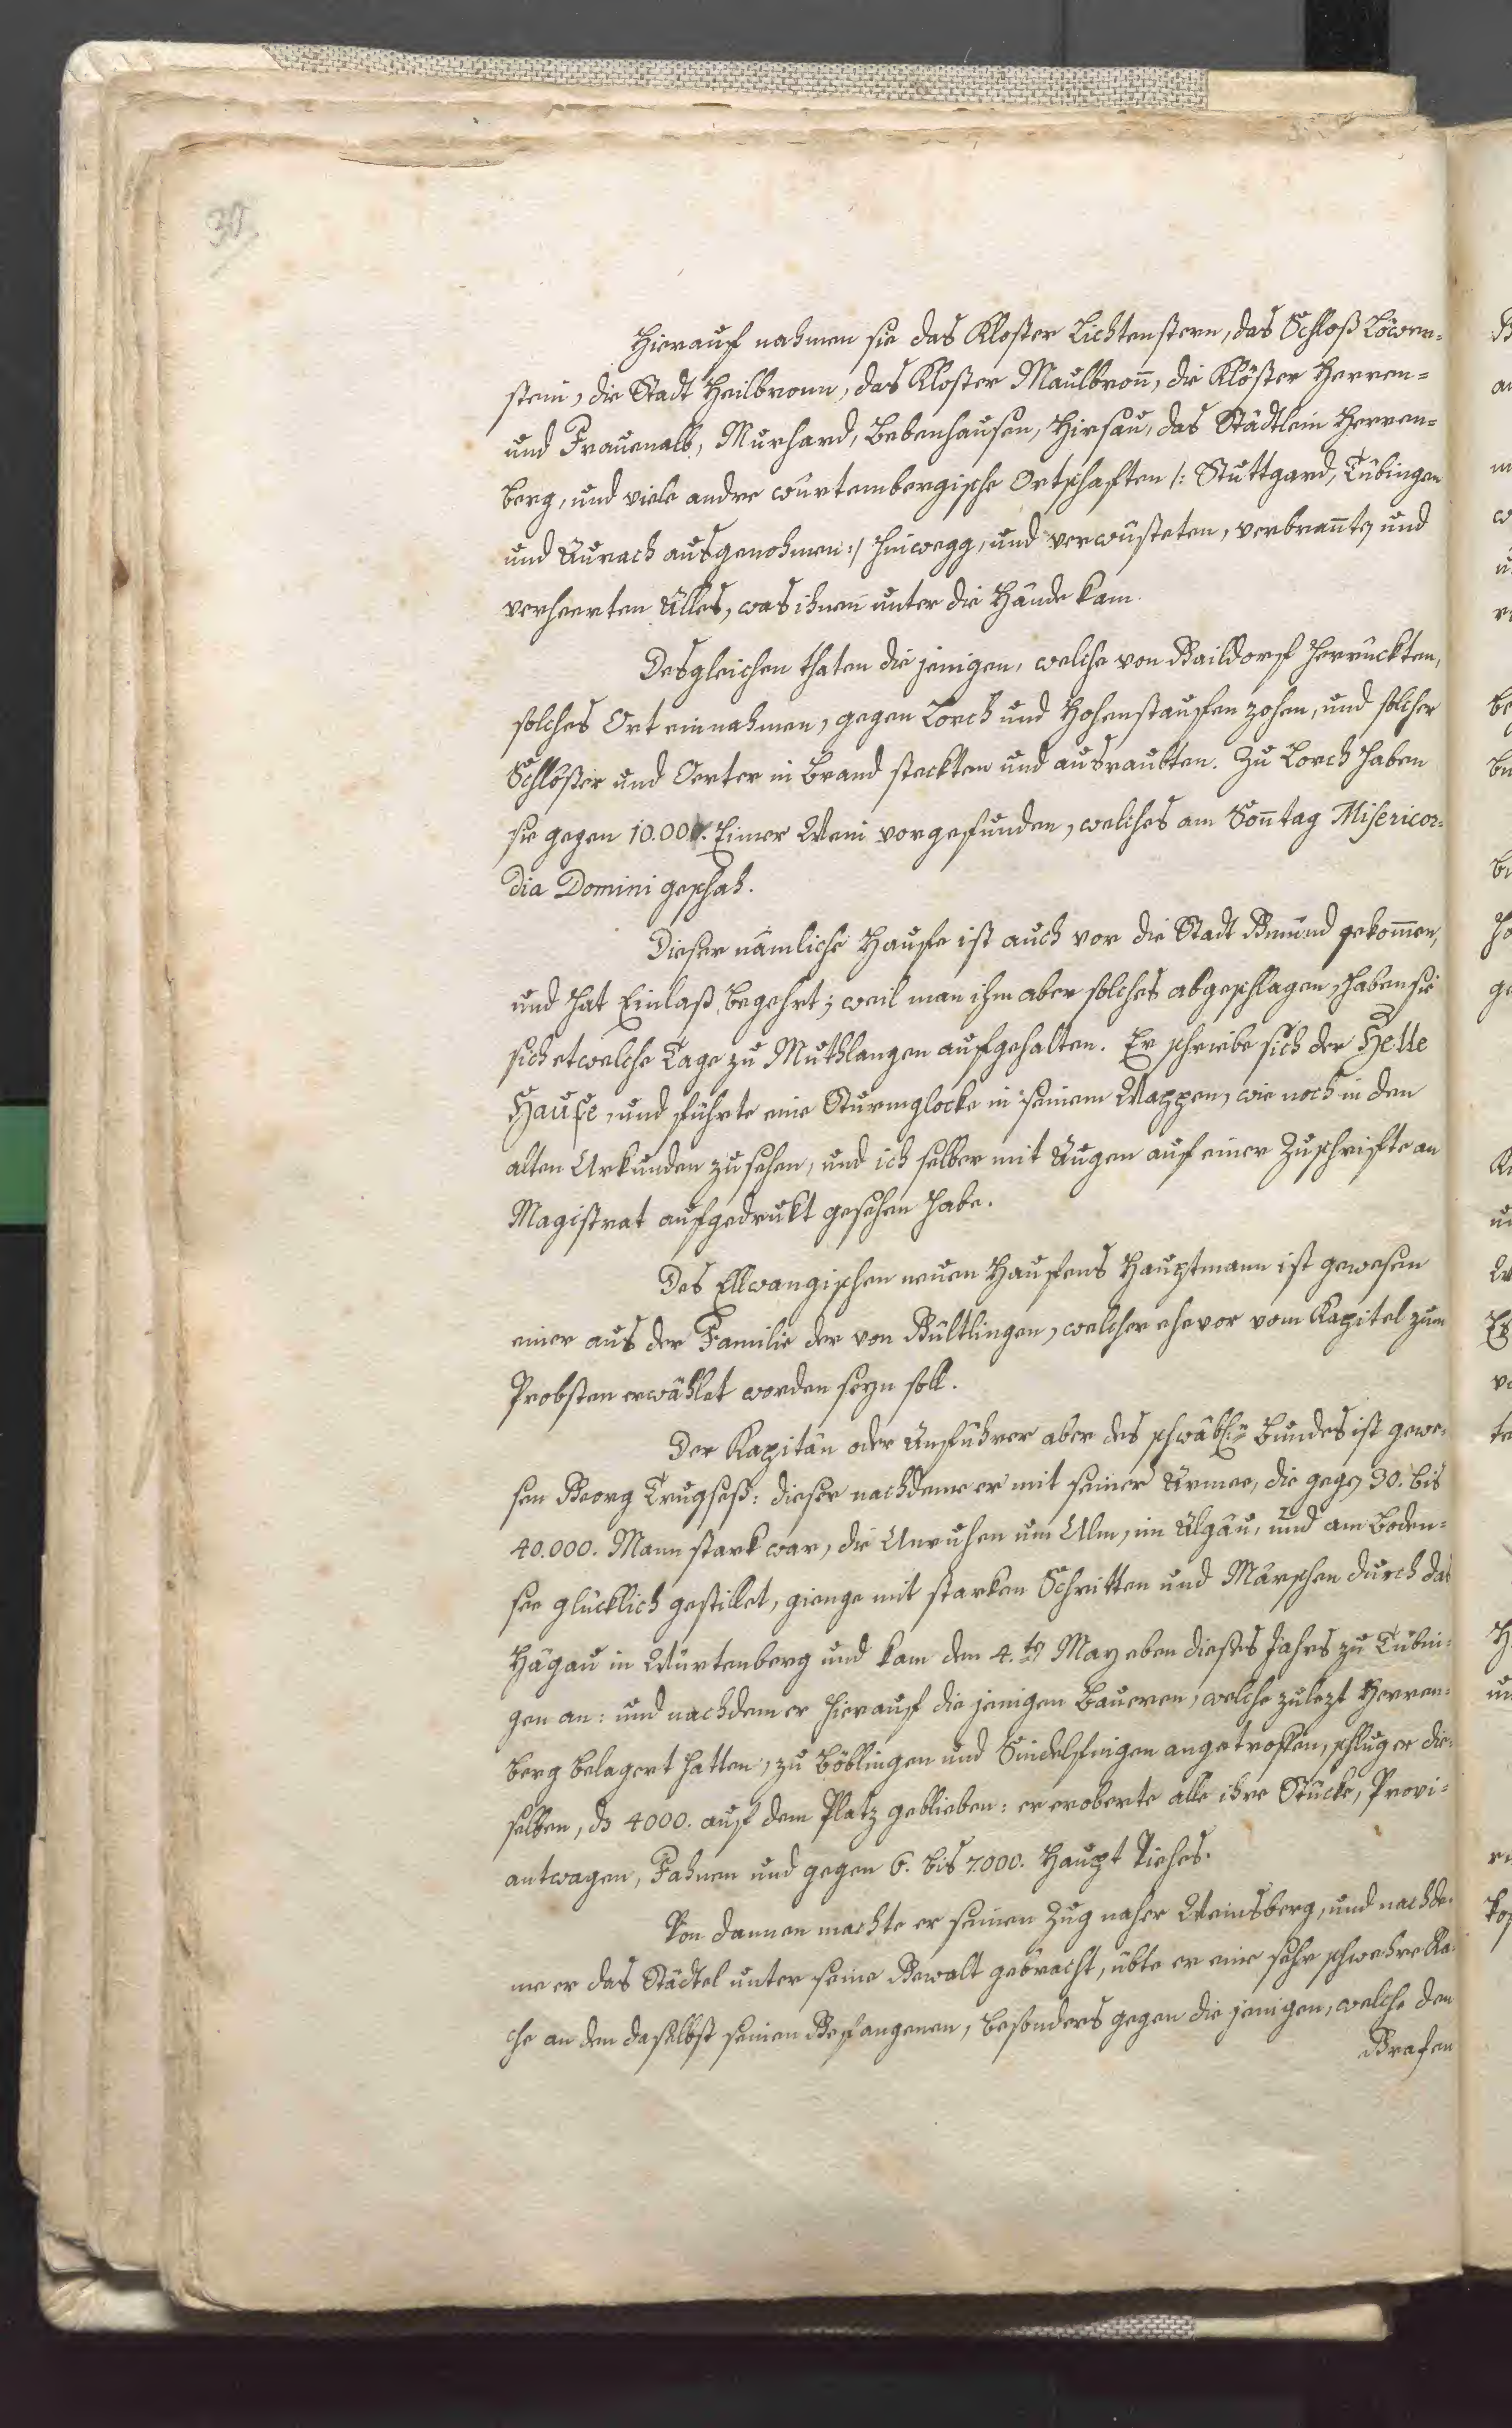 30.
Hierauf nahmen sie das Kloster Lichtenstern, das Schloß Löwen-
stein, die Stadt Heilbronn, das Kloster Maulbron̄, die Klöster Herren-
und Frauenalb, Murhard, Bebenhausen, Hirsau, das Städtlein Herren-
berg, und viele andre würtembergische Ortschaften /: Stuttgard, Tübingen
und Aurach ausgenohmen :/ hinwegg, und verwüsteten, verbran̄ten und
verheerten Alles, was ihnen unter die Hände kam.
Desgleichen thaten die jenigen, welche von Gaildorf herruckten,
solches Ort einnahmen, gegen Lorch und Hohenstauffen zohen, und solcher
Schlösser und Oerter in Brand steckten und ausraubten. Zu Lorch haben
sie gegen 10.000. Eimer Wein vorgefunden, welches am Son̄tag Misericor-
dia Domini geschah.
Dieser nämliche Haufe ist auch vor die Stadt Gmünd gekom̄en,
und hat Einlaß begehrt; weil man ihm aber solches abgeschlagen, haben sie
sich etwelche Tage zu Muthlangen aufgehalten. Er schriebe sich der Helle
Haufe, und führte eine Sturmglocke in seinem Wappen, wie noch in den
alten Urkunden zu sehen, und ich selber mit Augen auf einer Zuschrifte an
Magistrat aufgedrukt gesehen habe.
Des Ellwangischen neuen Haufens Hauptmann ist gewesen
einer aus der Familie der von Gültlingen, welcher ehevor vom Kapitel zum
Probsten erwählet worden seyn soll.
Der Kapitän oder Anführer aber des schwäbl. Bundes ist gewe-
sen Georg Trugseß: dieser nachdeme er mit seiner Armee, die gegen 30. bis
40.000. Mann stark war, die Unruhen um Ulm, im Algäu, und am Boden-
see glücklich gestillet, gienge mit starken Schritten und Märschen durch das
Hägäu in Würtenberg und kam den 4.ten May eben dieses Jahrs zu Tübin-
gen an: und nachdem er hierauf die jenigen Baueren, welche zulezt Herren-
berg belagert hatten, zu Böblingen und Sindelfingen angetroffen, schlug er die-
selben, daß 4000. auf dem Platz geblieben: er eroberte alle ihre Stücke, Provi-
antwagen, Fahnen und gegen 6. bis 7000. Haupt Viehes.
Von dannen machte er seinen Zug naher Weinsberg, und nachde-
me er das Städtel unter seine Gewalt gebracht, übte er eine sehr schwehre Ra-
che an den daselbst seinen Gefangenen, besonders gegen die jenigen, welche den
Grafen